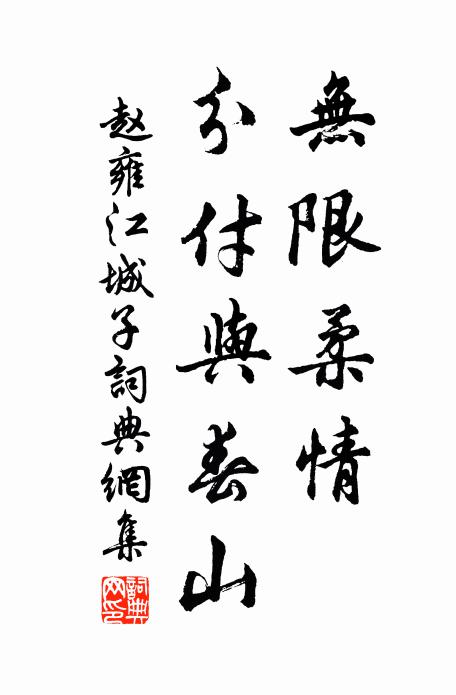 無限柔情
分付與春山
赵雍江城子詞典網集
詞典網印